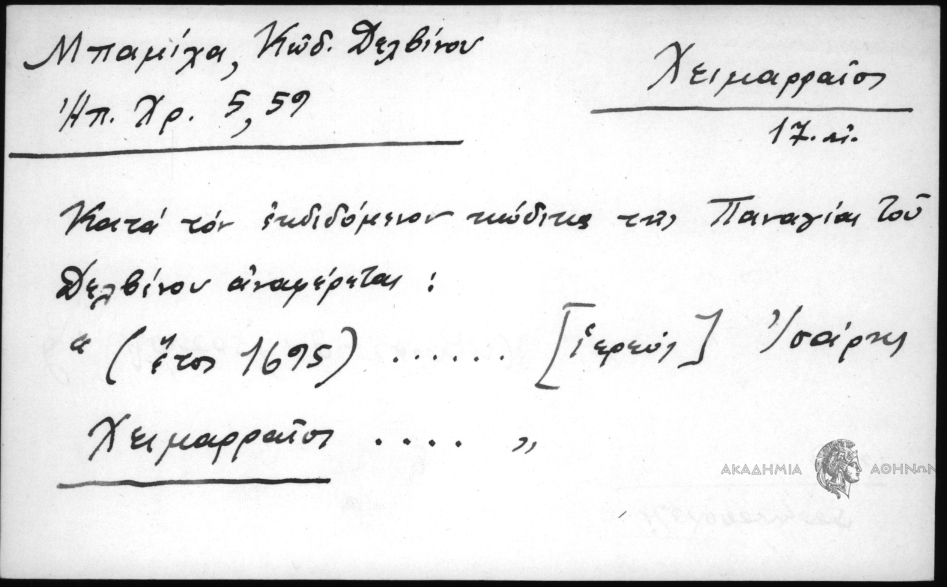 Μπαμίχα, Κώδ. Δελβίνου
Ἠπ. Χρ. 5, 59
Χειμαρραῖος
17. αἰ.
Κατά τόν ἐκδιδόμενον κώδικα τῆς Παναγίας τοῦ
Δελβίνου ἀναφέρεται :
“ (ἔτος 1695) ...... [ἱερεύς]
Χειμαρραῖος .... „
ΑΚΑΔΗΜΙΑ ΑΘΗΝΩΝ